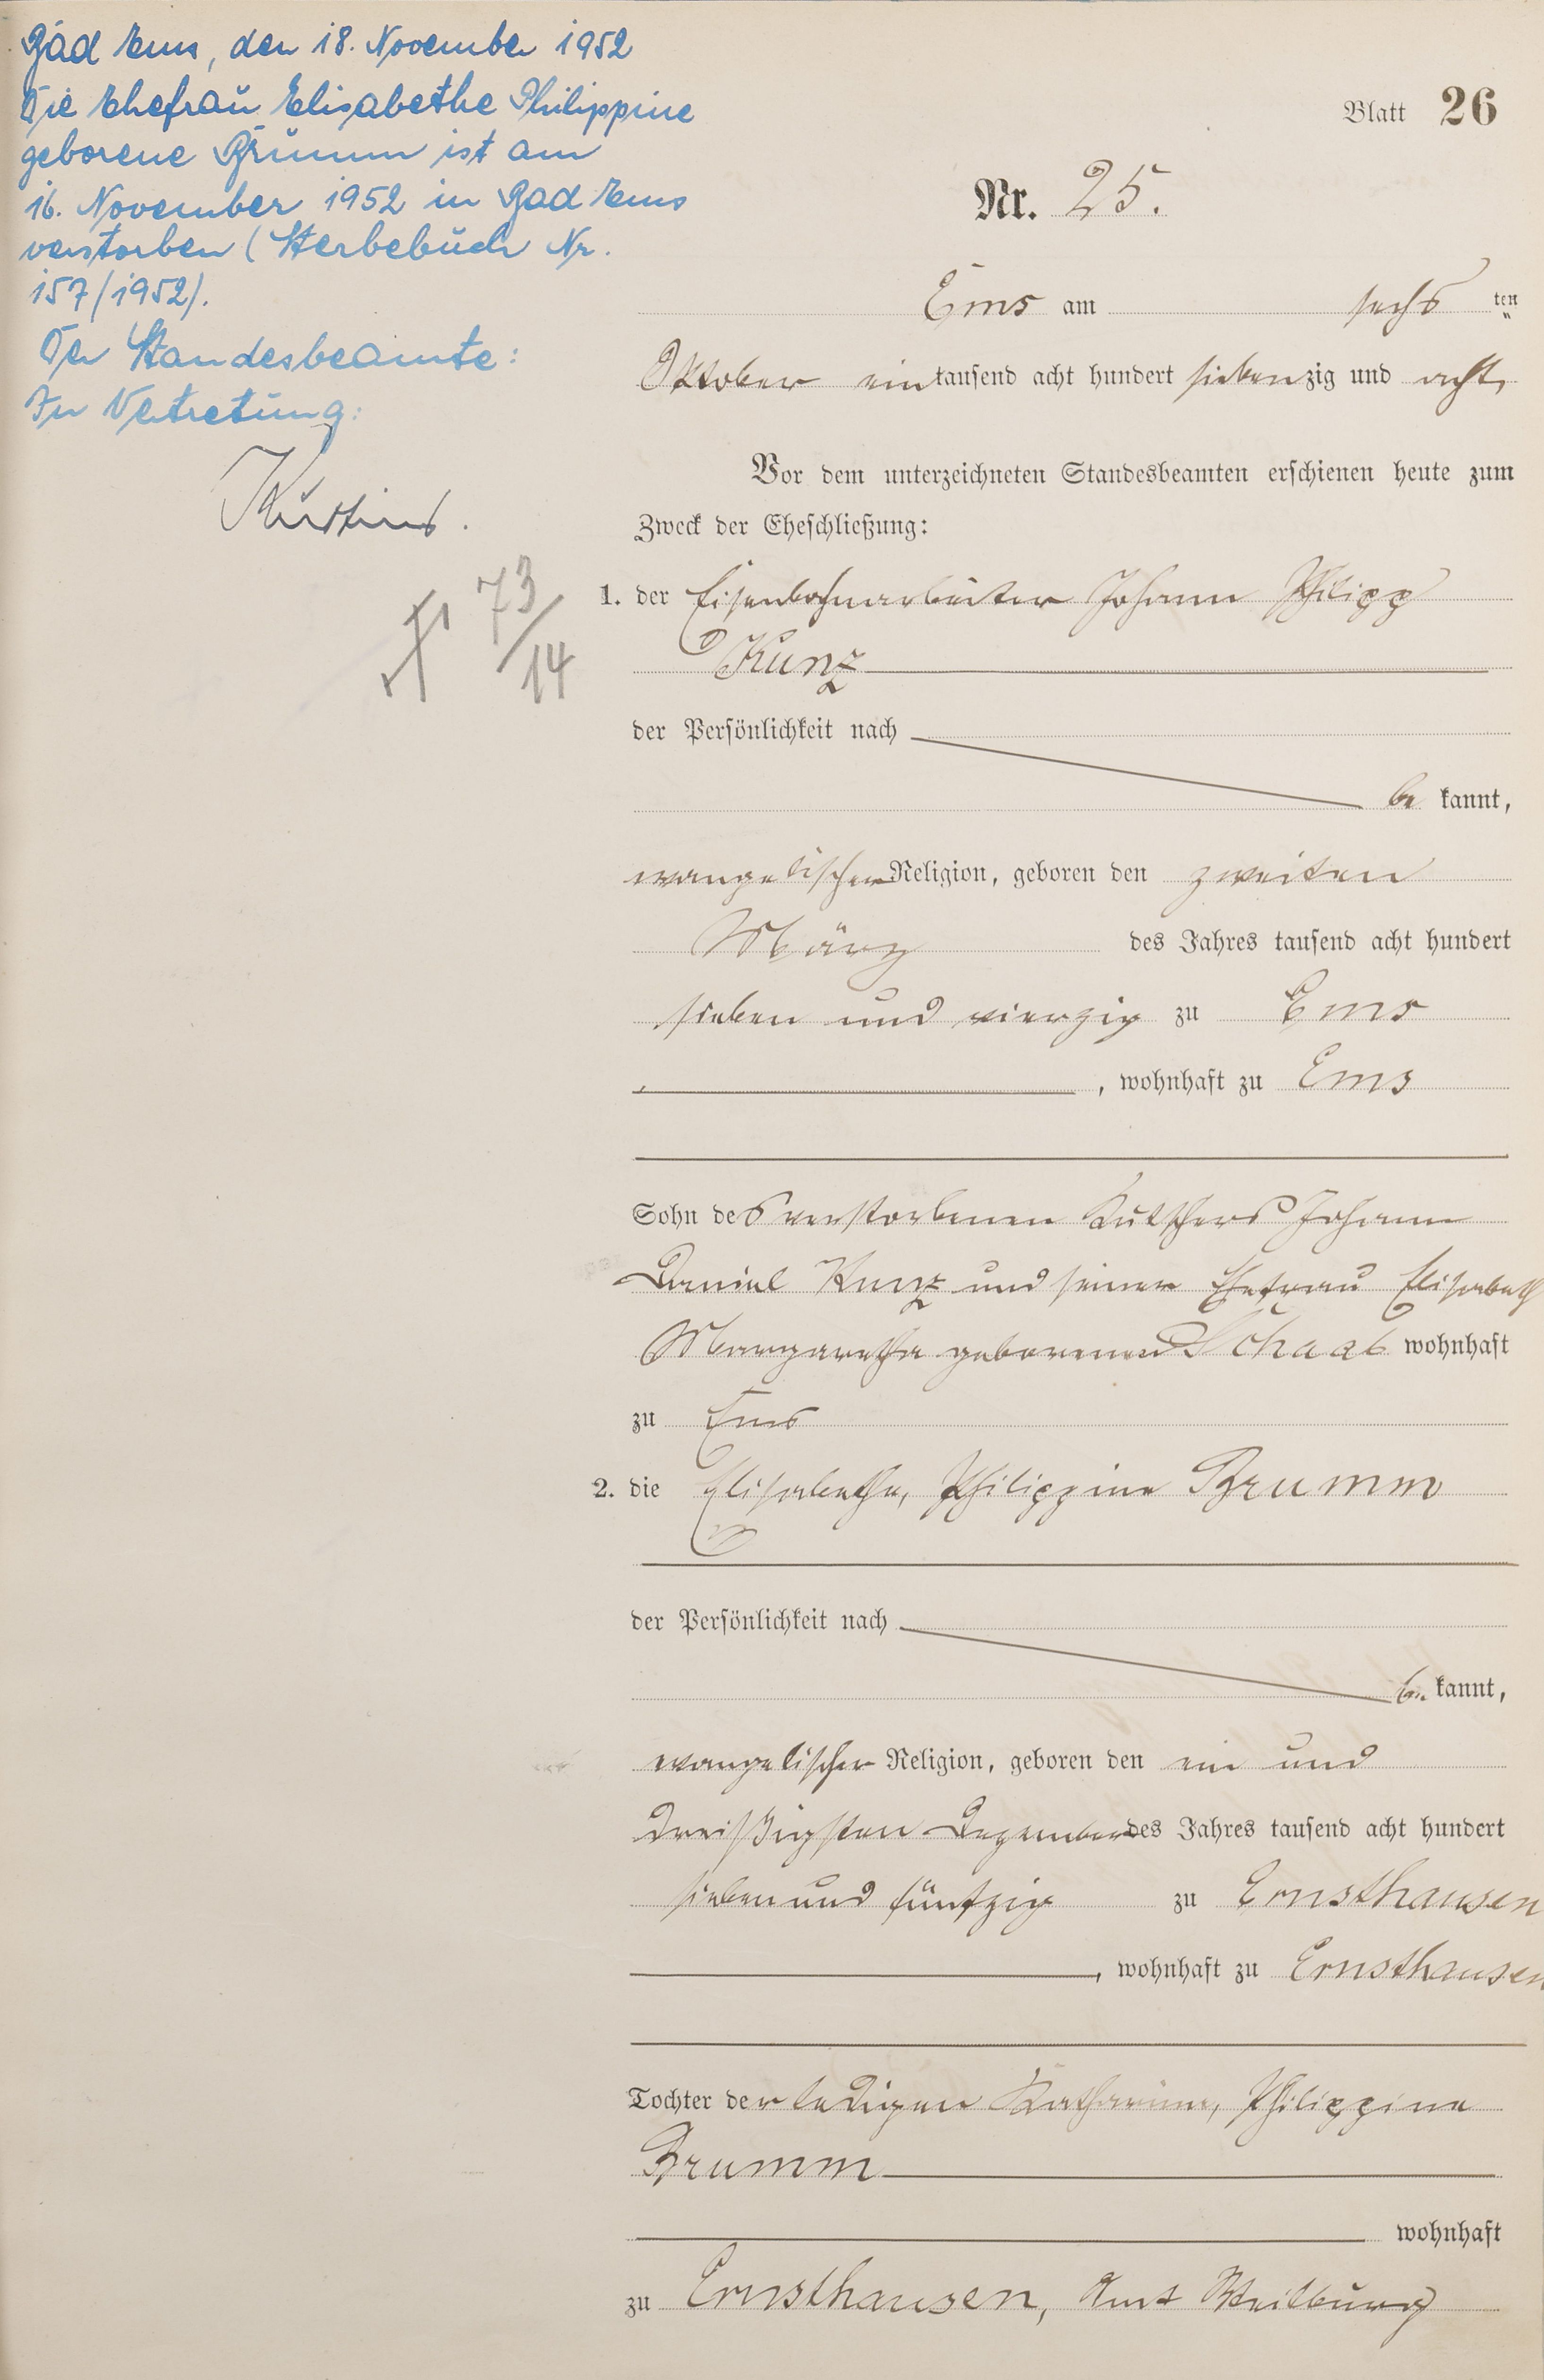 Bad Ems, den 18. November 1952
Die Ehefrau Elisabethe Philippine
geborene Brumm ist am
16. November 1952 in Bad Ems
verstorben (Sterbebuch Nr.
157/1952).
Der Standesbeamte:
In Vertretung:
73/14
Blatt 26
Nr. 25.
Ems am sechs ten
Oktober ein tausend acht hundert siebenzig und acht,
Vor dem unterzeichneten Standesbeamten erschienen heute zum
Zweck der Eheschließung:
1. der Eisenbahnarbeiter Johann Philipp
Kunz
der Persönlichkeit nach
be kannt,
evangelischer Religion, geboren den zweiten
März des Jahres tausend acht hundert
sieben und vierzig zu Ems
, wohnhaft zu Ems
Sohn des verstorbenen Kutschers Johann
Daniel Kunz und seiner Ehefrau Elisabeth
Margaretha geborenen Schaab wohnhaft
zu Ems
2. die Elisabetha, Philippine Brumm
der Persönlichkeit nach
be kannt,
evangelischer Religion, geboren den ein und
dreißigsten Dezember des Jahres tausend acht hundert
sieben und fünfzig zu Ernsthausen
, wohnhaft zu Ernsthausen
Tochter der ledigen Katharina, Philippina
Brumm
wohnhaft
zu Ernsthausen, Amt Weilburg